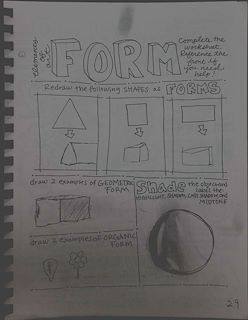 elements of art
FORM
Complete the
worksheet.
Reference the
front if
you need
help!
Redraw the following SHAPES as FORMS
draw 2 examples of GEOMETRIC
FORM
Shade the object and
label the
HIGHLIGHT, SHADOW, CAST SHADOW, AND
MIDTONE
draw 2 examples of ORGANIC
FORM
29